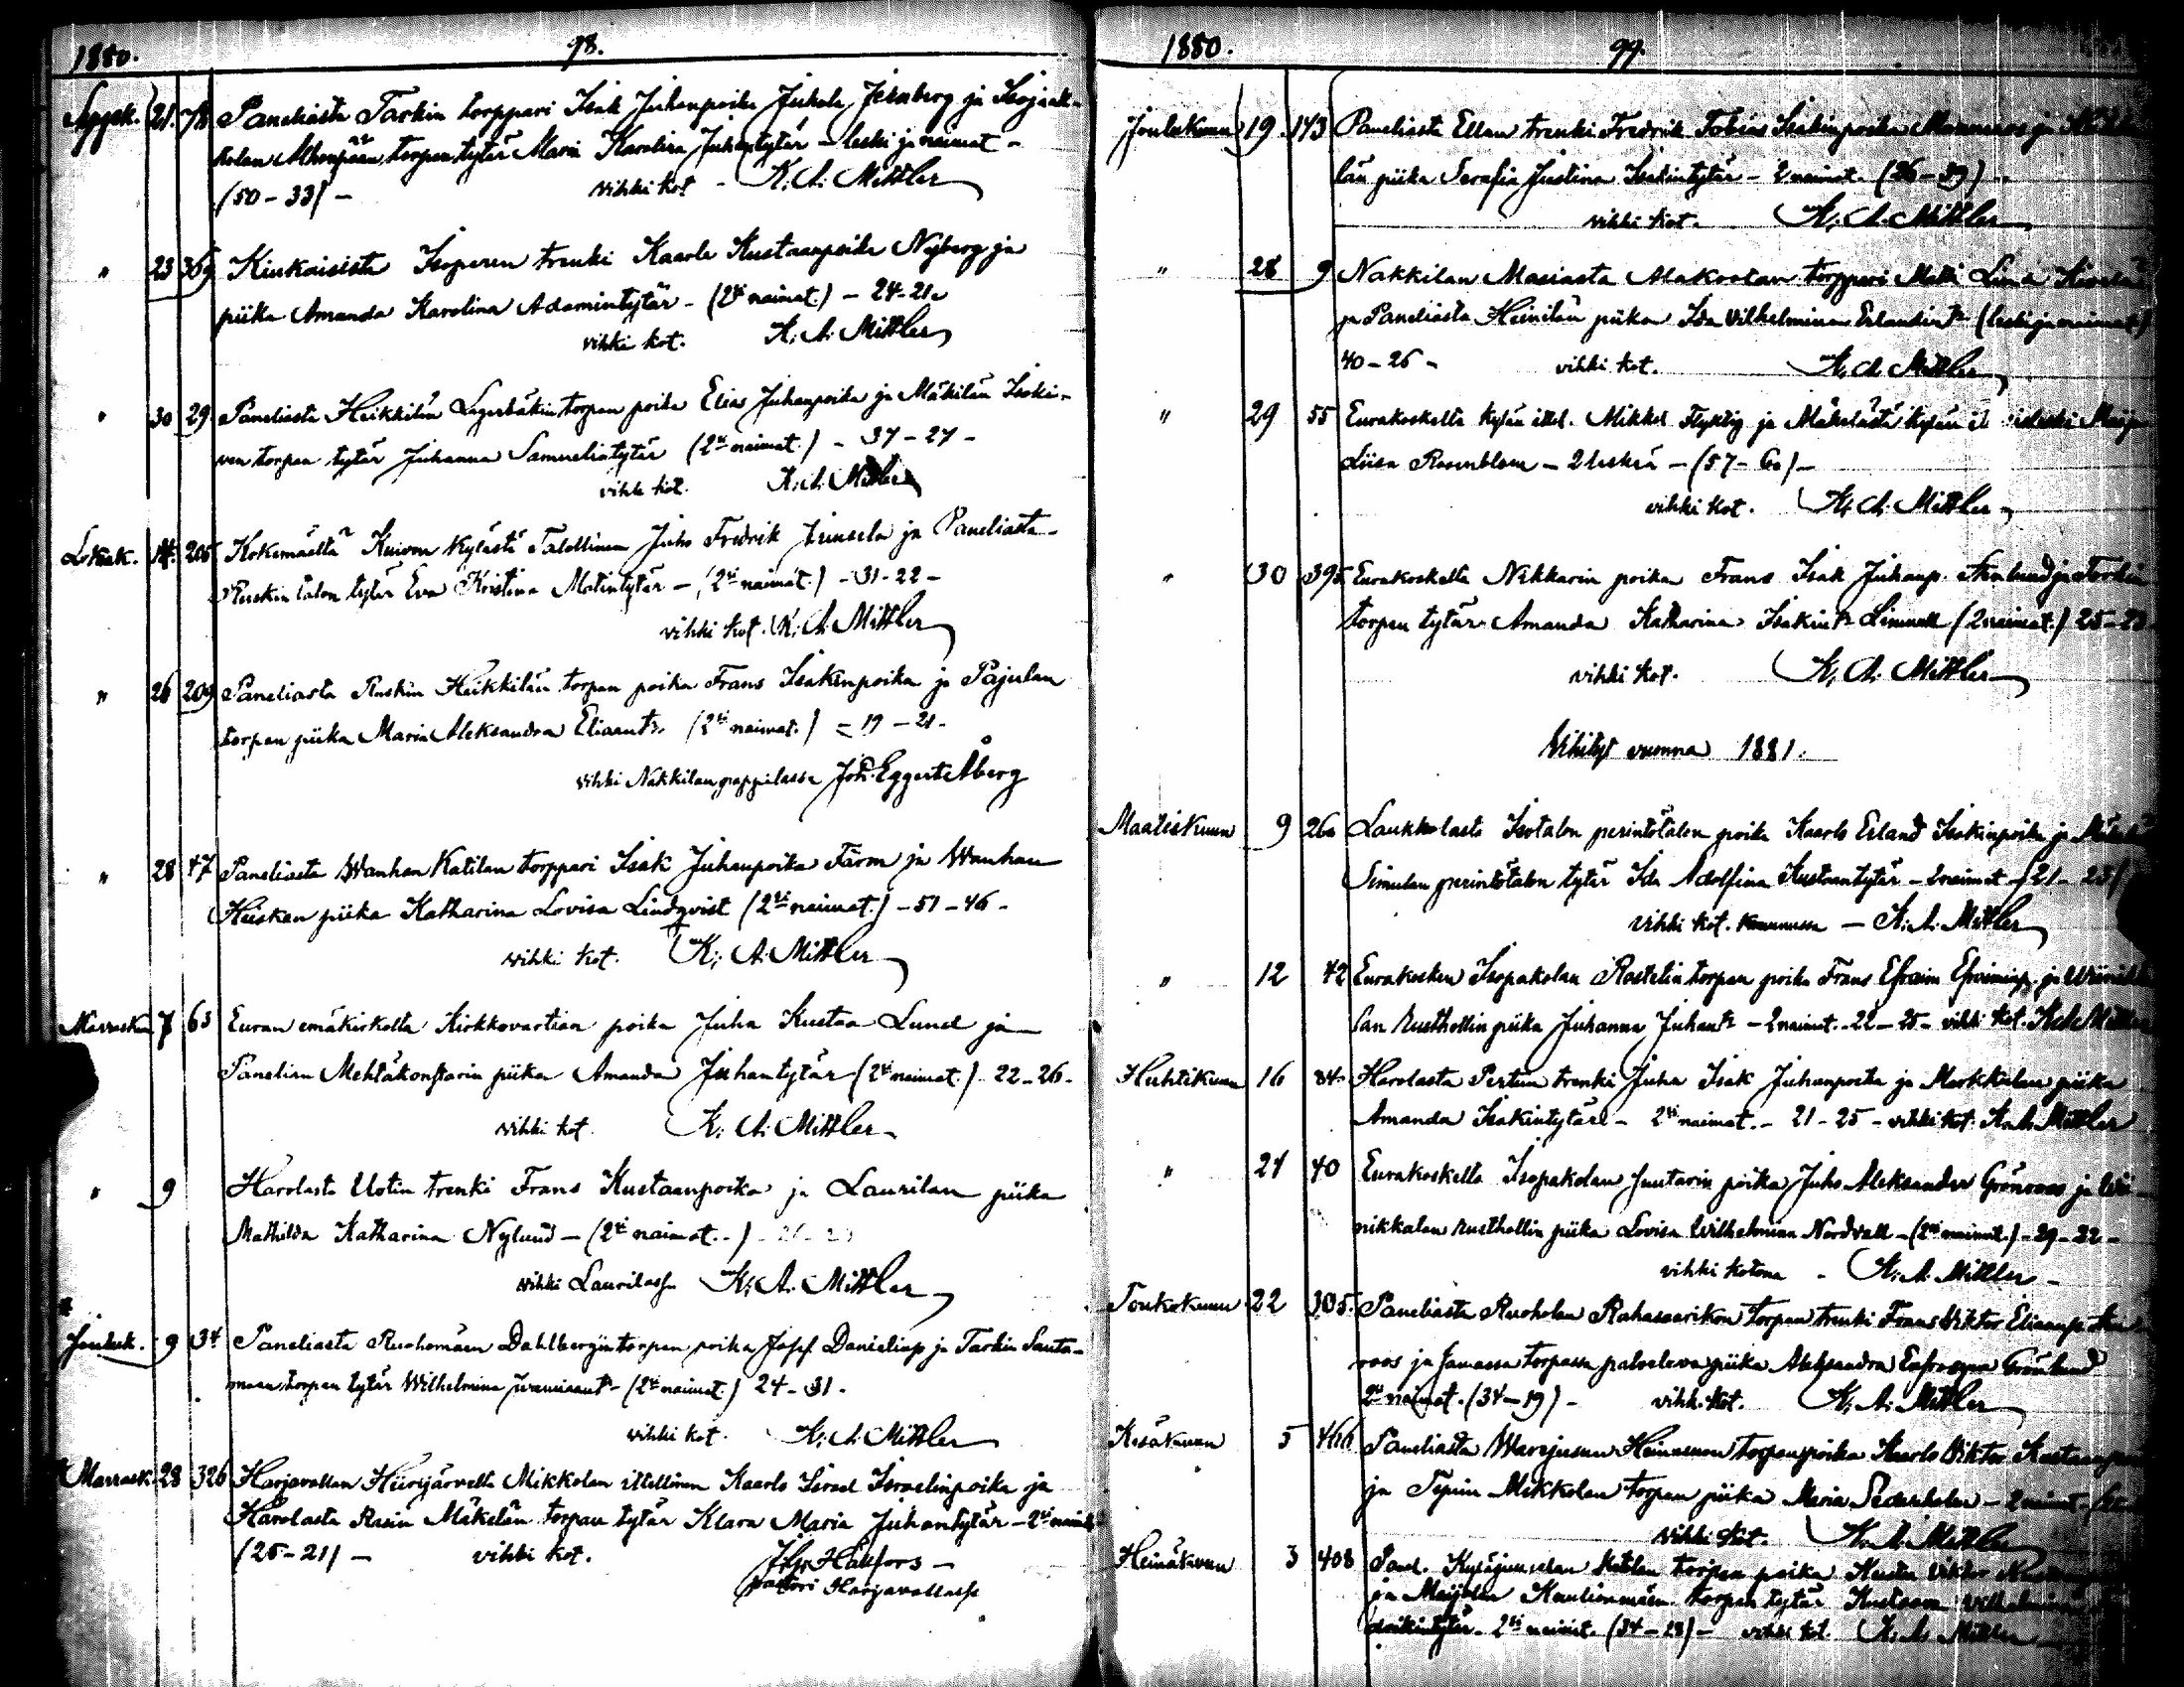 1880. 98.
Syysk. 21. 78 Paneliasta Tarkin torppari Isak Juhanpoika Juhola Jernberg ja Isojaak-
kolan torpan tytär Maria Karolina Juhantytär – leski ja naimat –
(50 – 33) – vihki kot – K. A. Mittler
" 23 369 Kiukaisista Isoperen trenki Kaarle Kustaanpoika Nyberg ja
piika Amanda Karolina Adamintytär – (2si naimat.) – 24-21.
vihki kot. K. A. Mittler
" 30 29. Paneliasta Heikkilän Lagerbäkin torpan poika Elias Juhanpoika ja Mäkilän
torpan tytär Juhanna Samuelintytär (2si naimat.) – 37 – 27 –
vihki kot. K. A. Mittler
Lokak. 14. 205 Kokemäeltä Kuivon kylästä Talollinen Juho Fredrik ja Paneliasta
Ruskin talon tytär Eva Kristina Matintytär – (2si naimat.) – 31-22 –
vihki kot. K. A. Mittler
" 26 209 Paneliasta Ruskin Heikkilän torpan poika Frans Isakinpoika ja Pajulan
torpan piika Maria Aleksandra Eliaant. (2si naimat.) – 19 – 21 –
vihki Nakkilan pappilassa Joh. Eggert Åberg
" 28 47 Paneliasta Wanhan Katilan torppari Isak Juhanpoika Färm ja Wanhan
Heiskan piika Katharina Lovisa Lindqvist (2si naimat.) – 51 – 46 –
vihki kot. K. A. Mittler
Marrask. 7 63 Euran emäkirkolta Kirkkovartian poika Juha Kustaa Lund ja
Panelian Mehtäkonstarin piika Amanda Juhantytär (2si naimat.) 22 – 26 –
vihki kot. K. A. Mittler
" 9 Harolasta Uotin trenki Frans Kustaanpoika ja Laurilan piika
Mathilda Katharina Nylund – (2si naimat. –)
vihki Laurilassa K. A. Mittler
Jouluk. 9 34 Paneliasta Ruohomäen Dahlbergin torpan poika Josef Danielinp. ja Tarkin Santa-
maan torpan tytär Wilhelmina – (2si naimat.) 24 – 31 –
vihki kot. K. A. Mittler
Marrask. 28 326 Harjavallan Hiirijärveltä Mikkolan itellinen Kaarlo Israel Israelinpoika ja
Harolasta Rasin Mäkelän torpan tytär Klara Maria Juhantytär – 2si naimat.
(25 – 21) – vihki kot. Hällfors –
pastori Harjavallassa
1880. 99.
Joulukuun 19. 143 Paneliasta Ellan trenki Fredrik Tobias Isakinpoika ja
län piika Serafia Justina Isakintytär – 2 naimat. (26 – 39) –
vihki kot. K. A. Mittler
" 28 9 Nakkilan Masiasta Alakoolan torppari Matti
ja Paneliasta Heinilän piikan Ida Vilhelmina Erlandint. (leski ja naimat.)
40 – 26 – vihki kot. K. A. Mittler
" 29 55 Eurakoskelta kylän itel. Mikkel Flyktig ja Mäkelästä kylän Maija
Liisa Rosenblom – 2 leskiä – (57 – 60) –
vihki kot. K. A. Mittler
" 30 395 Eurakoskelta Nikkarin poika Frans Isak Juhanp. ja
torpan tytär Amanda Katharina Isakint. (2 naimat.) 25 –
vihki kot. K. A. Mittler
Vihityt vuonna 1881.
Maaliskuun 9 260 Laukkolasta Isotalon perintötalon poika Kaarlo Erland Isakinpoika ja
Simulan perintötalon tytär Ida Adolfina Kustaantytär – 2 naimat – (21 – 25)
vihki kot. – K. A. Mittler
" 12 42 Eurakosken Isopakolan Rostelin torpan poika Frans Efraim Efraiminp. ja
lan Rusthollin piika Juhanna Juhant. – 2 naimat. – 22 – 25 – vihki kot. K. A. Mittler
Huhtikuun 16 84. Harolasta Perttun trenki Juha Isak Juhanpoika ja Markkulan piika
Amanda Isakintytär – 2si naimat. – 21 – 25 – vihki kot. K. A. Mittler
" 24 40 Eurakoskelta Isopakolan Juutarin poika Juho Aleksander Grönroos ja Wii-
nikkalan rusthollin piika Lovisa Wilhelmina Nordvall – (2si naimat.) – 29 – 22 –
vihki kotona – K. A. Mittler –
Toukokuun 22 305. Paneliasta Ruoholan Rahasaarikon torpan trenki Frans Viktor Eliaanp.
roos ja samassa torpassa palveleva piika Aleksandra Eufrosyna Grönlund
2si naimat. (34 – 19) – vihki kot. K. A. Mittler
Kesäkuun 5 466 Paneliasta torpan poika Kaarlo Viktor
ja Tepiin Mikkolan torpan piika Maria – 2 naimat.
vihki kot. K. A. Mittler
Heinäkuun 3 408 Panel. torpan poika Kusta Viktor
ja torpan tytär Kustaava Vilhelmina
2si naimat. (34 – 28) – vihki kot. K. A. Mittler